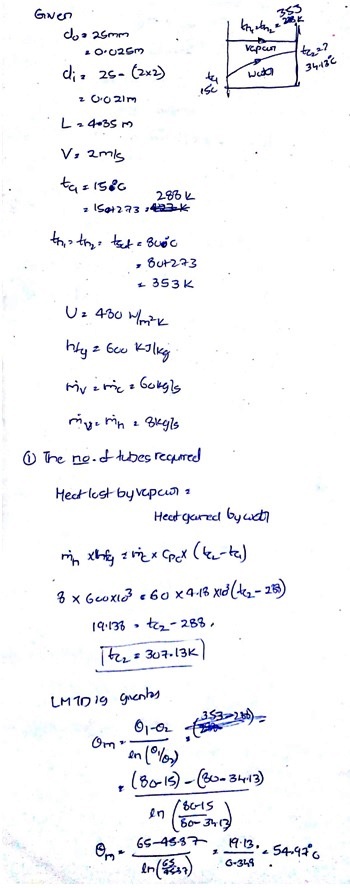 Given
do = 25mm
= 0.025m
di = 25 - (2x2)
= 0.021m
L = 4.35 m
V = 2m/s
tc1 = 15°C
288 K
= 150+273 = 423 K
th1 = th2 = tsat = 80°C
= 80+273
= 353 K
U = 480 W/m²K
hfg = 600 KJ/kg
ṁv = ṁc = 60kg/s
ṁv = ṁh = 8kg/s
353
th1 = th2 = K
vapour
tc2 = ?
34.13°C
tc1
15C
water
① The no. of tubes required
Heat lost by vapour =
Heat gained by water
ṁh x hfg = ṁc x Cpc x (tc2 - tc1)
8 x 600x10³ = 60 x 4.18 x10³ (tc2 - 288)
19.138 = tc2 - 288.
tc2 = 307.13K
LMTD is
θm = θ1-θ2 / ln (θ1/θ2) = (353-288)
= (80-15) - (80-34.13)
ln (80-15 / 80-34.13)
θm = 65-45.87 / ln(65/45.87) = 19.13 / 0.348 = 54.97°C